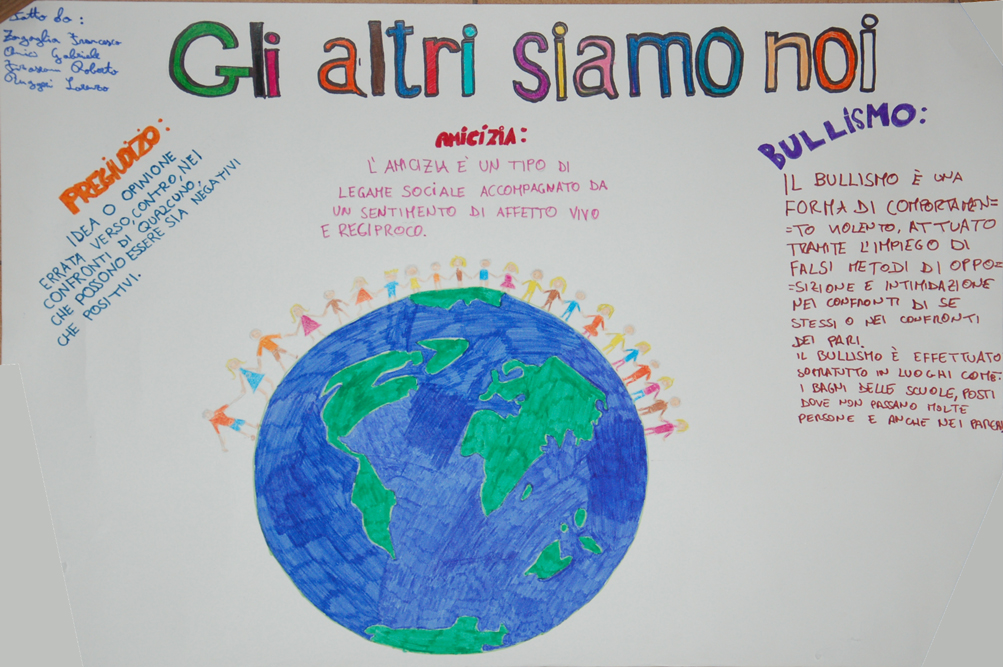 Fatto da:
Francesco
Gabriele
Roberto
Lorenzo
Gli altri siamo noi
PREGIUDIZIO:
IDEA O OPINIONE
ERRATA VERSO, CONTRO, NEI
CONFRONTI DI QUALCUNO,
CHE POSSONO ESSERE SIA NEGATIVI
CHE POSITIVI.
AMICIZIA:
L'AMICIZIA E' UN TIPO DI
LEGAME SOCIALE ACCOMPAGNATO DA
UN SENTIMENTO DI AFFETTO VIVO
E REGIPROCO.
BULLISMO:
IL BULLISMO È UNA
FORMA DI COMPORTAMEN=
=TO VIOLENTO, ATTUATO
TRAMITE L'IMPIEGO DI
FALSI METODI DI OPPO=
=SIZIONE E INTIMIDAZIONE
NEI CONFRONTI DI SE
STESSI O NEI CONFRONTI
DEI PARI.
IL BULLISMO È EFFETTUATO
SOPRATUTTO IN LUOGHI COME:
I BAGNI DELLE SCUOLE, POSTI
DOVE NON PASSANO MOLTE
PERSONE E ANCHE NEI